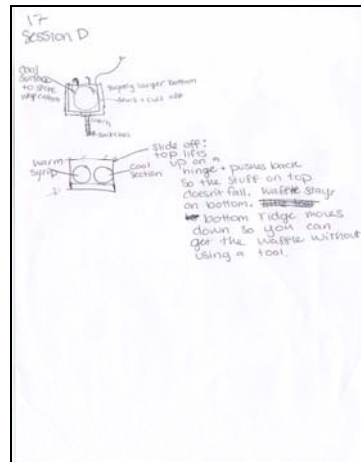 17
Session D
cool
surface
to store
whip cream
slightly larger bottom
switches
warm
syrup
cool
section
slide off:
top lifts
up on a
hinge + pushes back
so the stuff on top
doesn't fall. waffle stays
on bottom.
bottom ridge moves
down so you can
get the waffle without
using a tool.